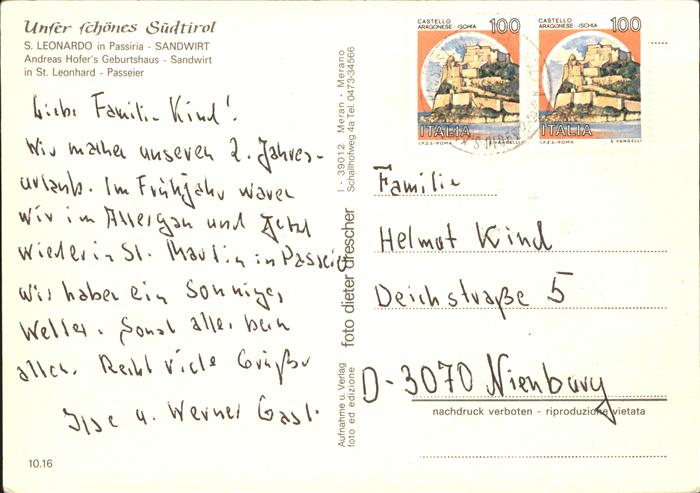 Unser schönes Südtirol
S. LEONARDO in Passiria - SANDWIRT
Andreas Hofer's Geburtshaus - Sandwirt
in St. Leonhard - Passeier
Liebe Familie Kind!
Wir machen unseren 2. Jahres-
urlaub. Im Frühjahr waren
wir im Allergau und jetzt
wieder in St. Martin in Passeier
wir haben ein sonniges
Wetter. Sonst alles beim
alten. Recht viele Grüße
Ilse u. Werner Gast.
10.16
I - 39012 Meran - Merano
Schallhofweg 4a Tel. 0473-34566
foto dieter drescher
Aufnahme u. Verlag
foto ed edizione
CASTELLO
ARAGONESE - ISCHIA
100
ITALIA
I.P.Z.S. - ROMA
CASTELLO
ARAGONESE - ISCHIA
100
ITALIA
I.P.Z.S. - ROMA
E. VANGELLI
Familie
Helmut Kind
Deichstraße 5
D-3070 Nienburg
nachdruck verboten - riproduzione vietata